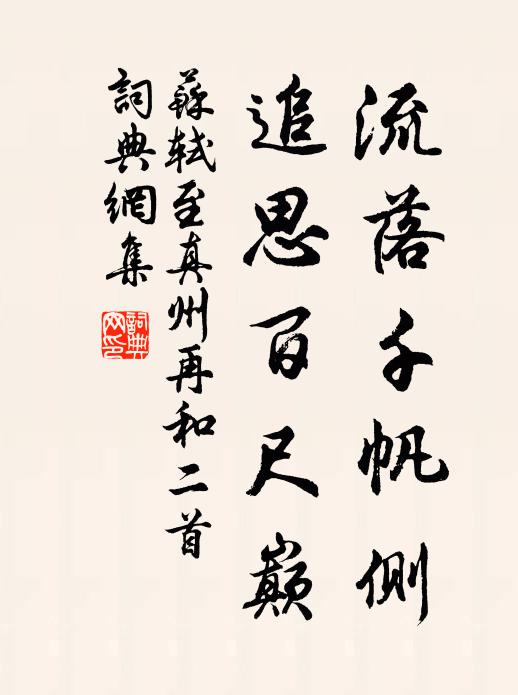 流落千帆側
追思百尺巔
蘇軾至真州再和二首
詞典網集
詞典網印